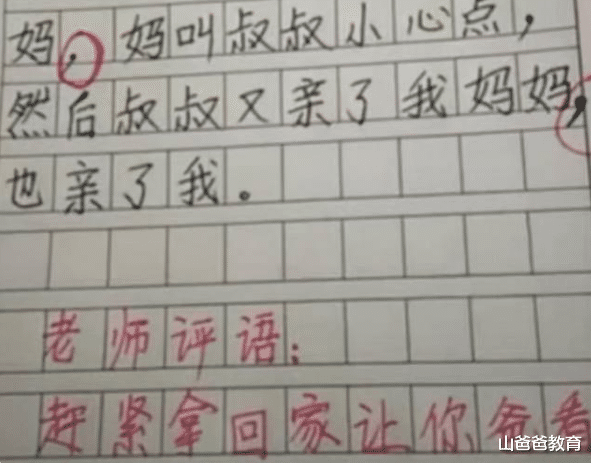 妈，妈叫叔叔小心点，
然后叔叔又亲了我妈妈，
也亲了我。
老师评语：
赶紧拿回家让你爸看
山爸爸教育